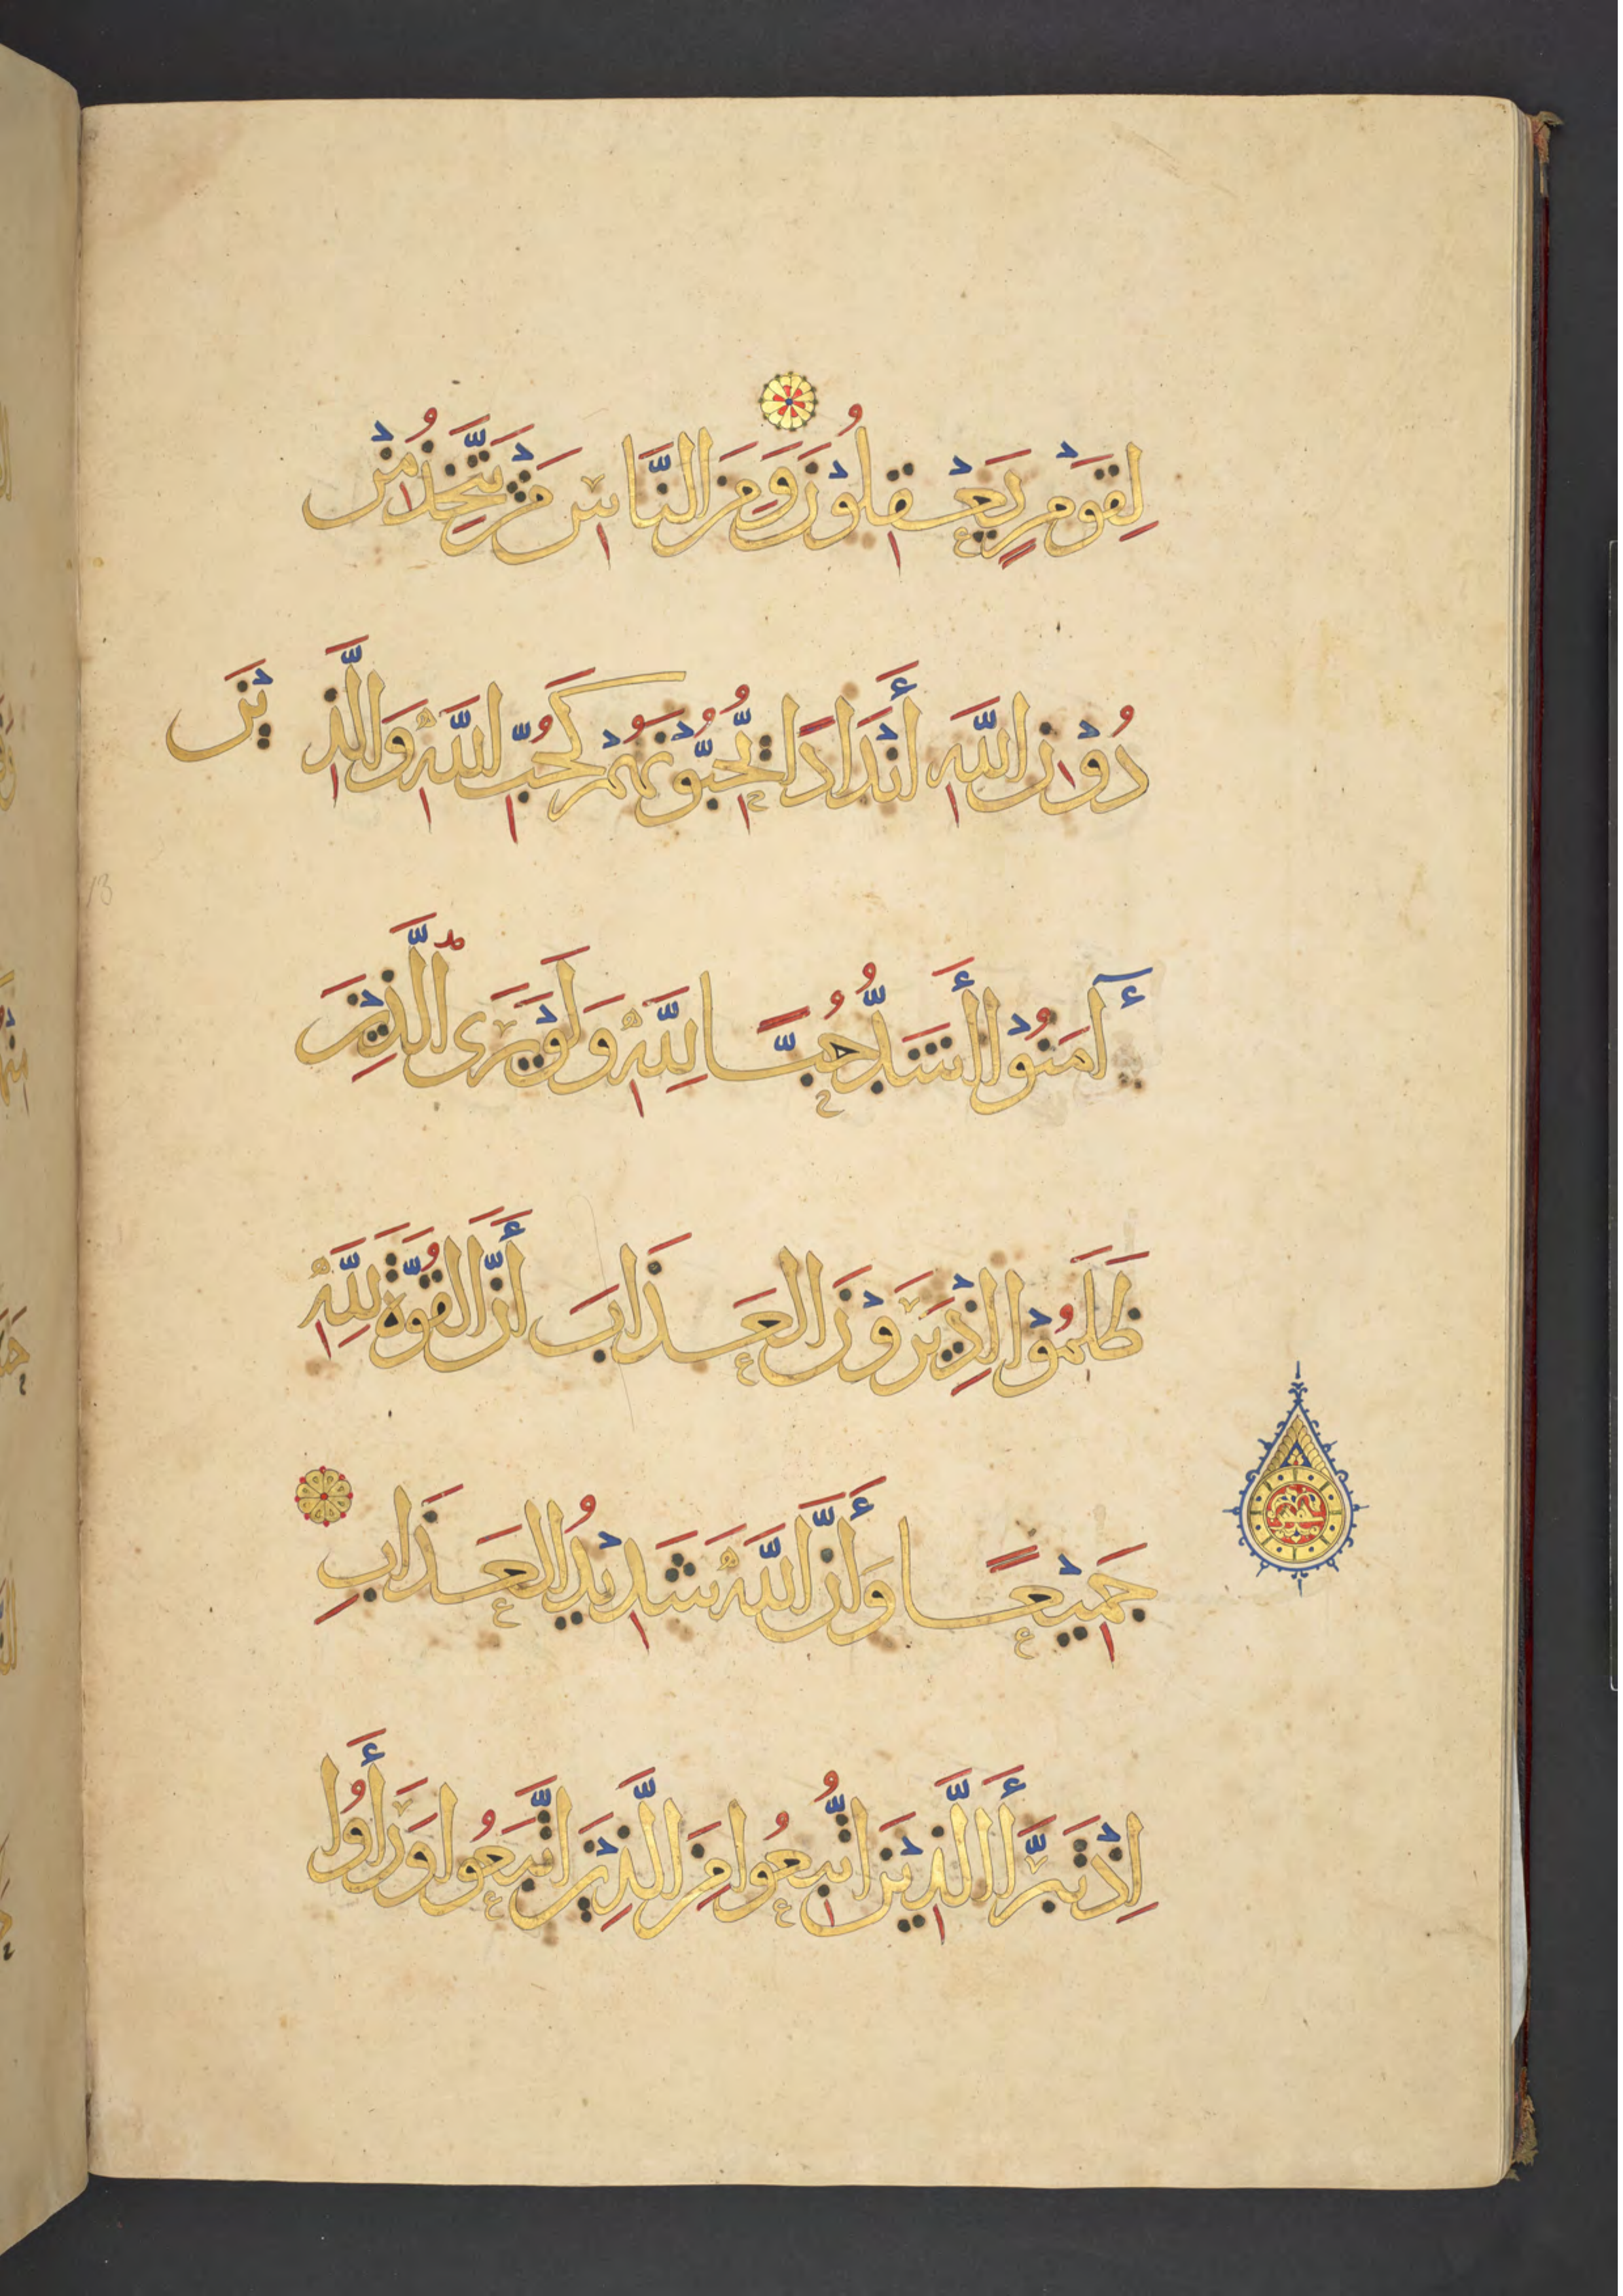 لِقَوْمٍ يَعْقِلُوْنَ وَمِنَ النَّاسِ مَنْ يَتَّخِذُ مِنْ
دُوْنِ اللَّهِ أَنْدَادًا يُحِبُّوْنَهُمْ كَحُبِّ اللَّهِ وَالَّذِيْنَ
آمَنُوْا أَشَدُّ حُبًّا لِلَّهِ وَلَوْ يَرَى الَّذِيْنَ
ظَلَمُوْا إِذْ يَرَوْنَ الْعَذَابَ أَنَّ الْقُوَّةَ لِلَّهِ
جَمِيْعًا وَأَنَّ اللَّهَ شَدِيْدُ الْعَذَابِ
إِذْ تَبَرَّأَ الَّذِيْنَ اتُّبِعُوا مِنَ الَّذِيْنَ اتَّبَعُوا وَرَأَوُا